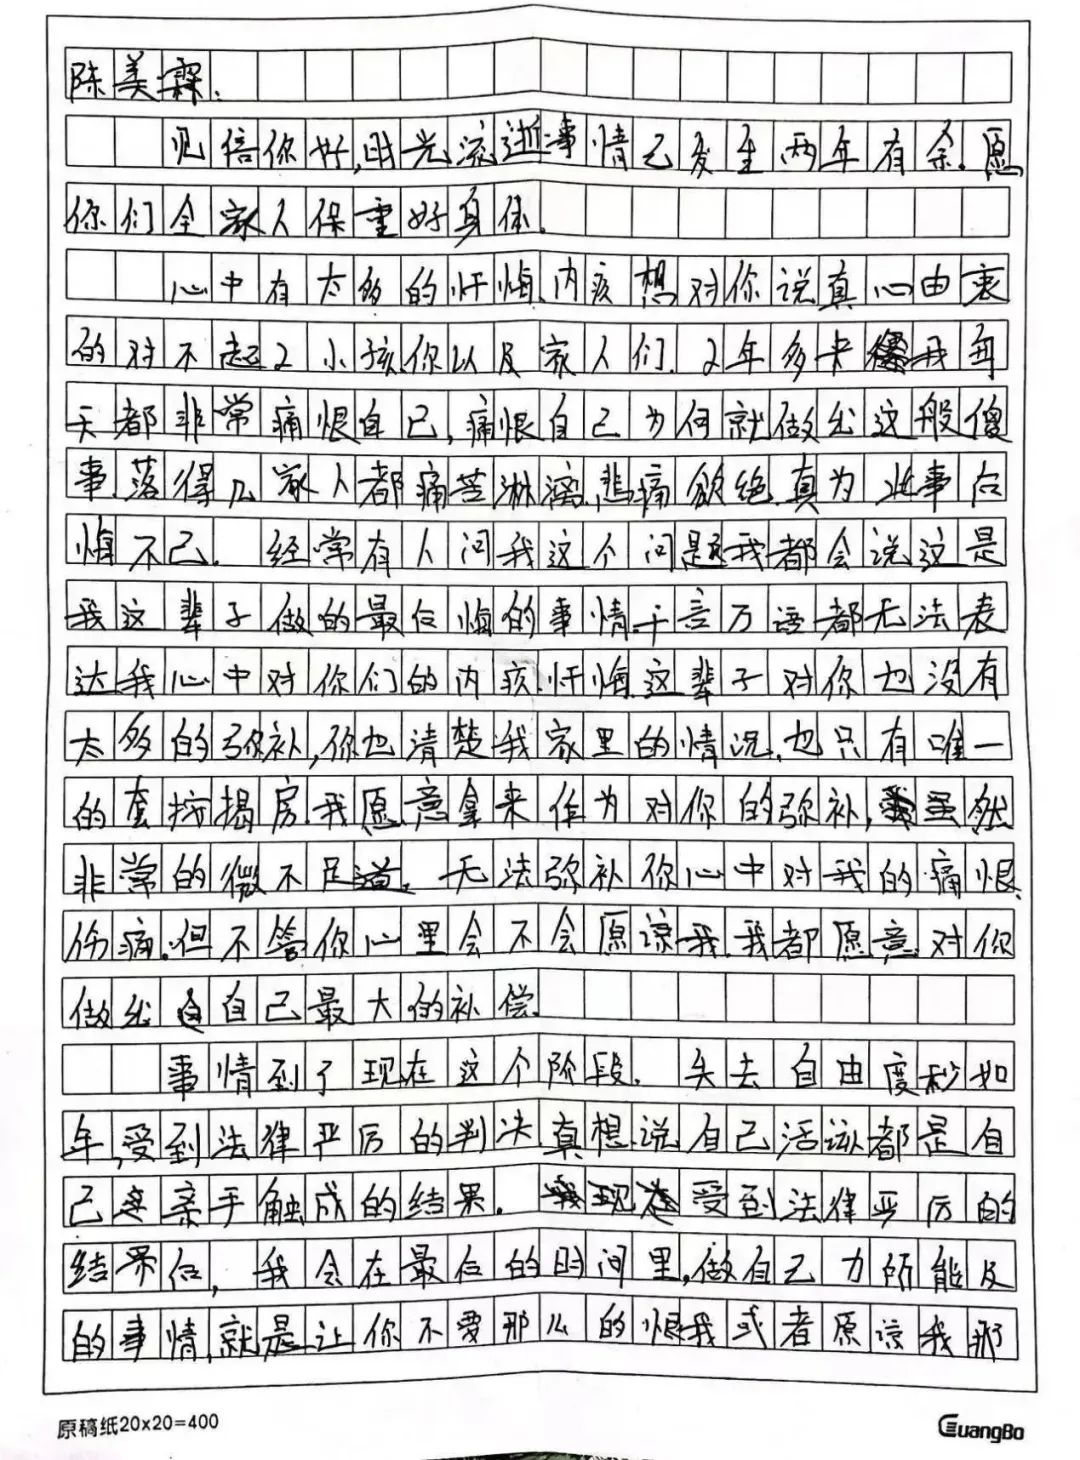 陈美霖：
见信你好,时光流逝事情已发生两年有余.愿
你们全家人保重好身体.
心中有太多的忏悔、内疚想对你说真心由衷
的对不起2小孩.你以及家人们.2年多来我每
天都非常痛恨自己,痛恨自己为何就做出这般傻
事.落得几家人都痛苦淋漓.悲痛欲绝.真为此事后
悔不已.经常有人问我这个问题我都会说这是
我这辈子做的最后悔的事情.千言万语都无法表
达我心中对你们的内疚.忏悔.这辈子对你也没有
太多的弥补,你也清楚我家里的情况.也只有唯一
的套按揭房.我愿意拿来作为对你的弥补,虽然
非常的微不足道.无法弥补你心中对我的痛恨、
伤痛.但不管你心里会不会原谅我.我都愿意对你
做出自己最大的补偿.
事情到了现在这个阶段.失去自由度秒如
年,受到法律严厉的判决.真想说自己活该都是自
己亲手触成的结果.受到法律严厉的
结果后,我会在最后的时间里,做自己力所能及
的事情,就是让你不要那么的恨我或者原谅我那
原稿纸20×20=400
GuangBo